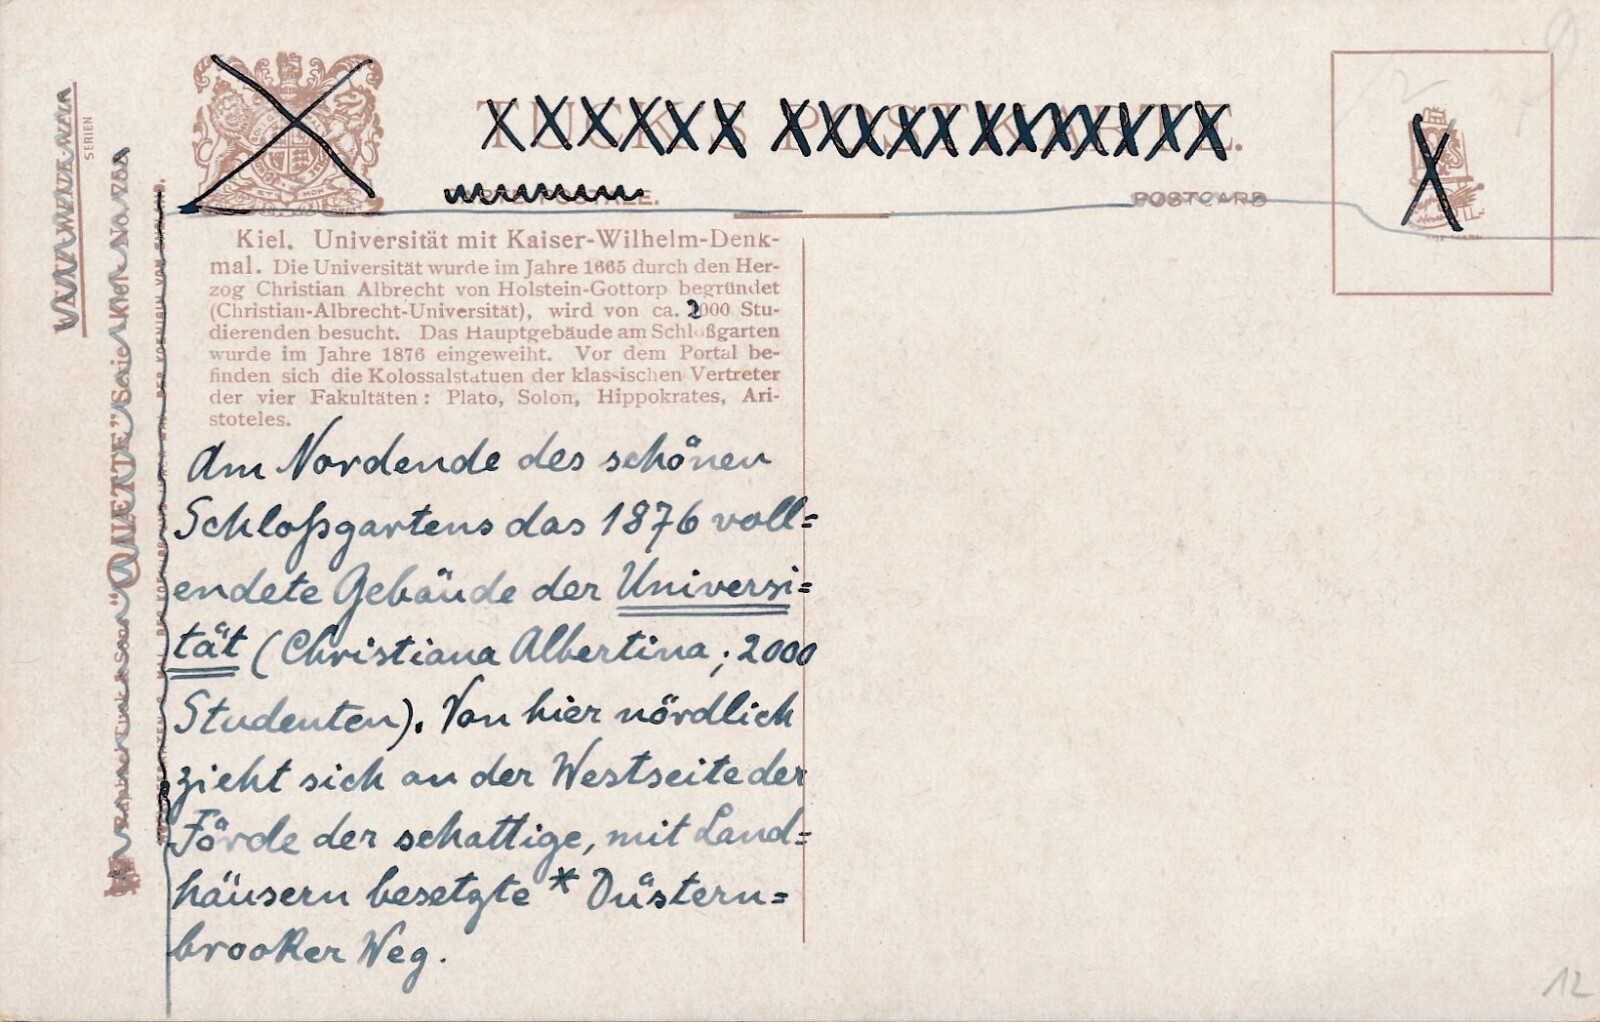 TUCK'S POST KARTE.
POSTCARD
SERIEN
"OILETTE" Serie Kiel No.
Kiel. Universität mit Kaiser-Wilhelm-Denk-
mal. Die Universität wurde im Jahre 1665 durch den Her-
zog Christian Albrecht von Holstein-Gottorp begründet
(Christian-Albrecht-Universität), wird von ca. 2000 Stu-
dierenden besucht. Das Hauptgebäude am Schloßgarten
wurde im Jahre 1876 eingeweiht. Vor dem Portal be-
finden sich die Kolossalstatuen der klassischen Vertreter
der vier Fakultäten: Plato, Solon, Hippokrates, Ari-
stoteles.
Am Nordende des schönen
Schloßgartens das 1876 voll=
endete Gebäude der Universi=
tät (Christiana Albertina; 2000
Studenten). Von hier nördlich
zieht sich an der Westseite der
Förde der schattige, mit Land=
häusern besetzte * Düstern=
brooker Weg.
12